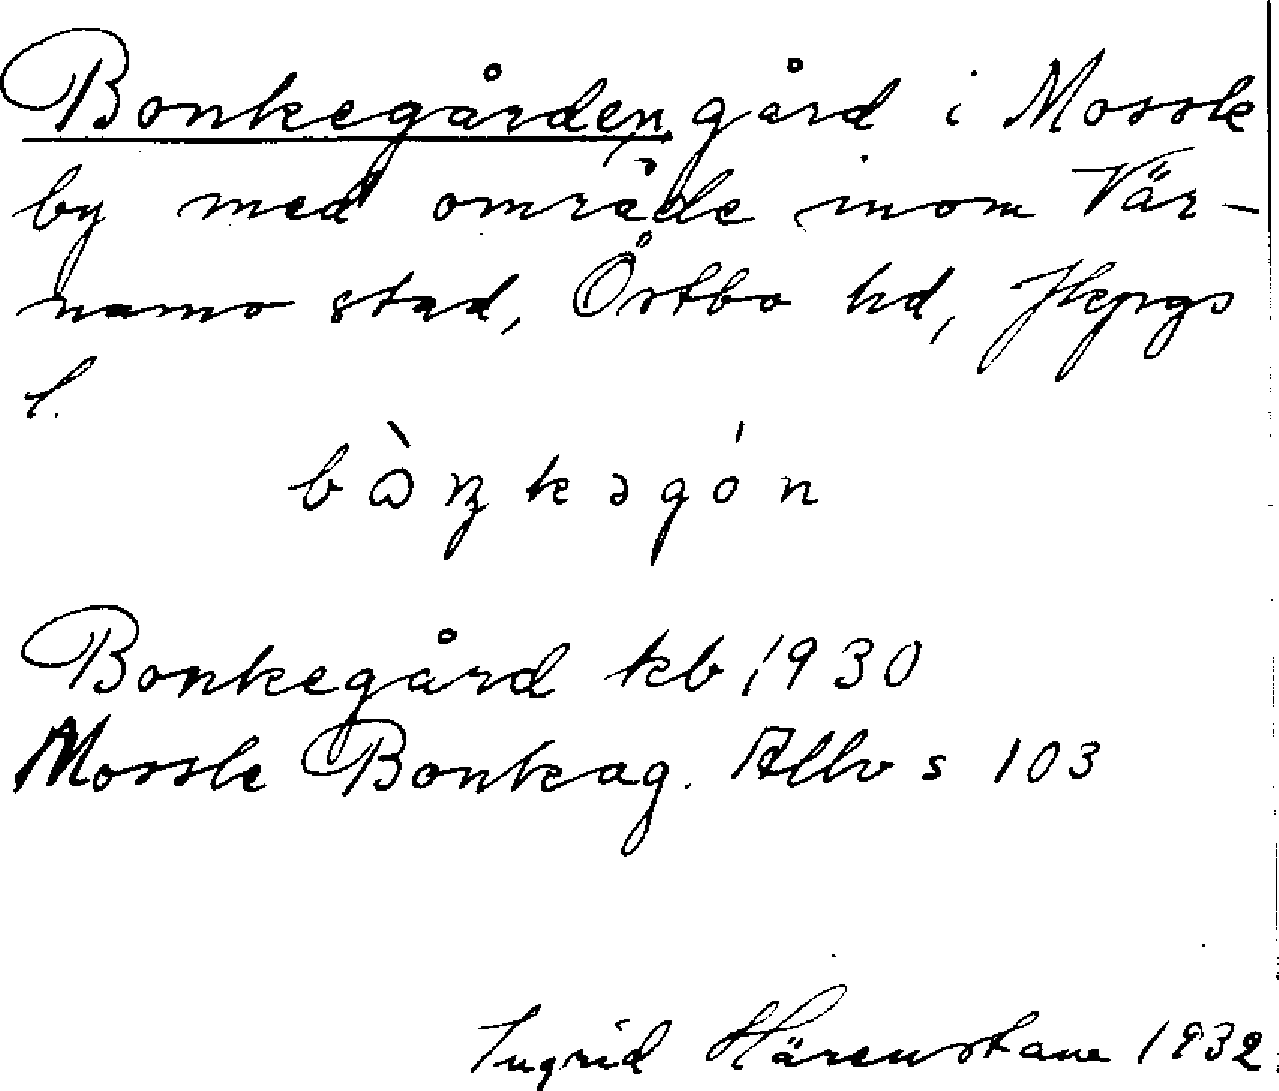 Bonkegården, gård i Mossle
by med område inom Vär-
namo stad, Östbo hd, Jkpgs
l.
bὼŋkəgón
Bonkegård kb 1930
Mossle Bonkag. Allv s 103
Ingrid Härenstam 1932